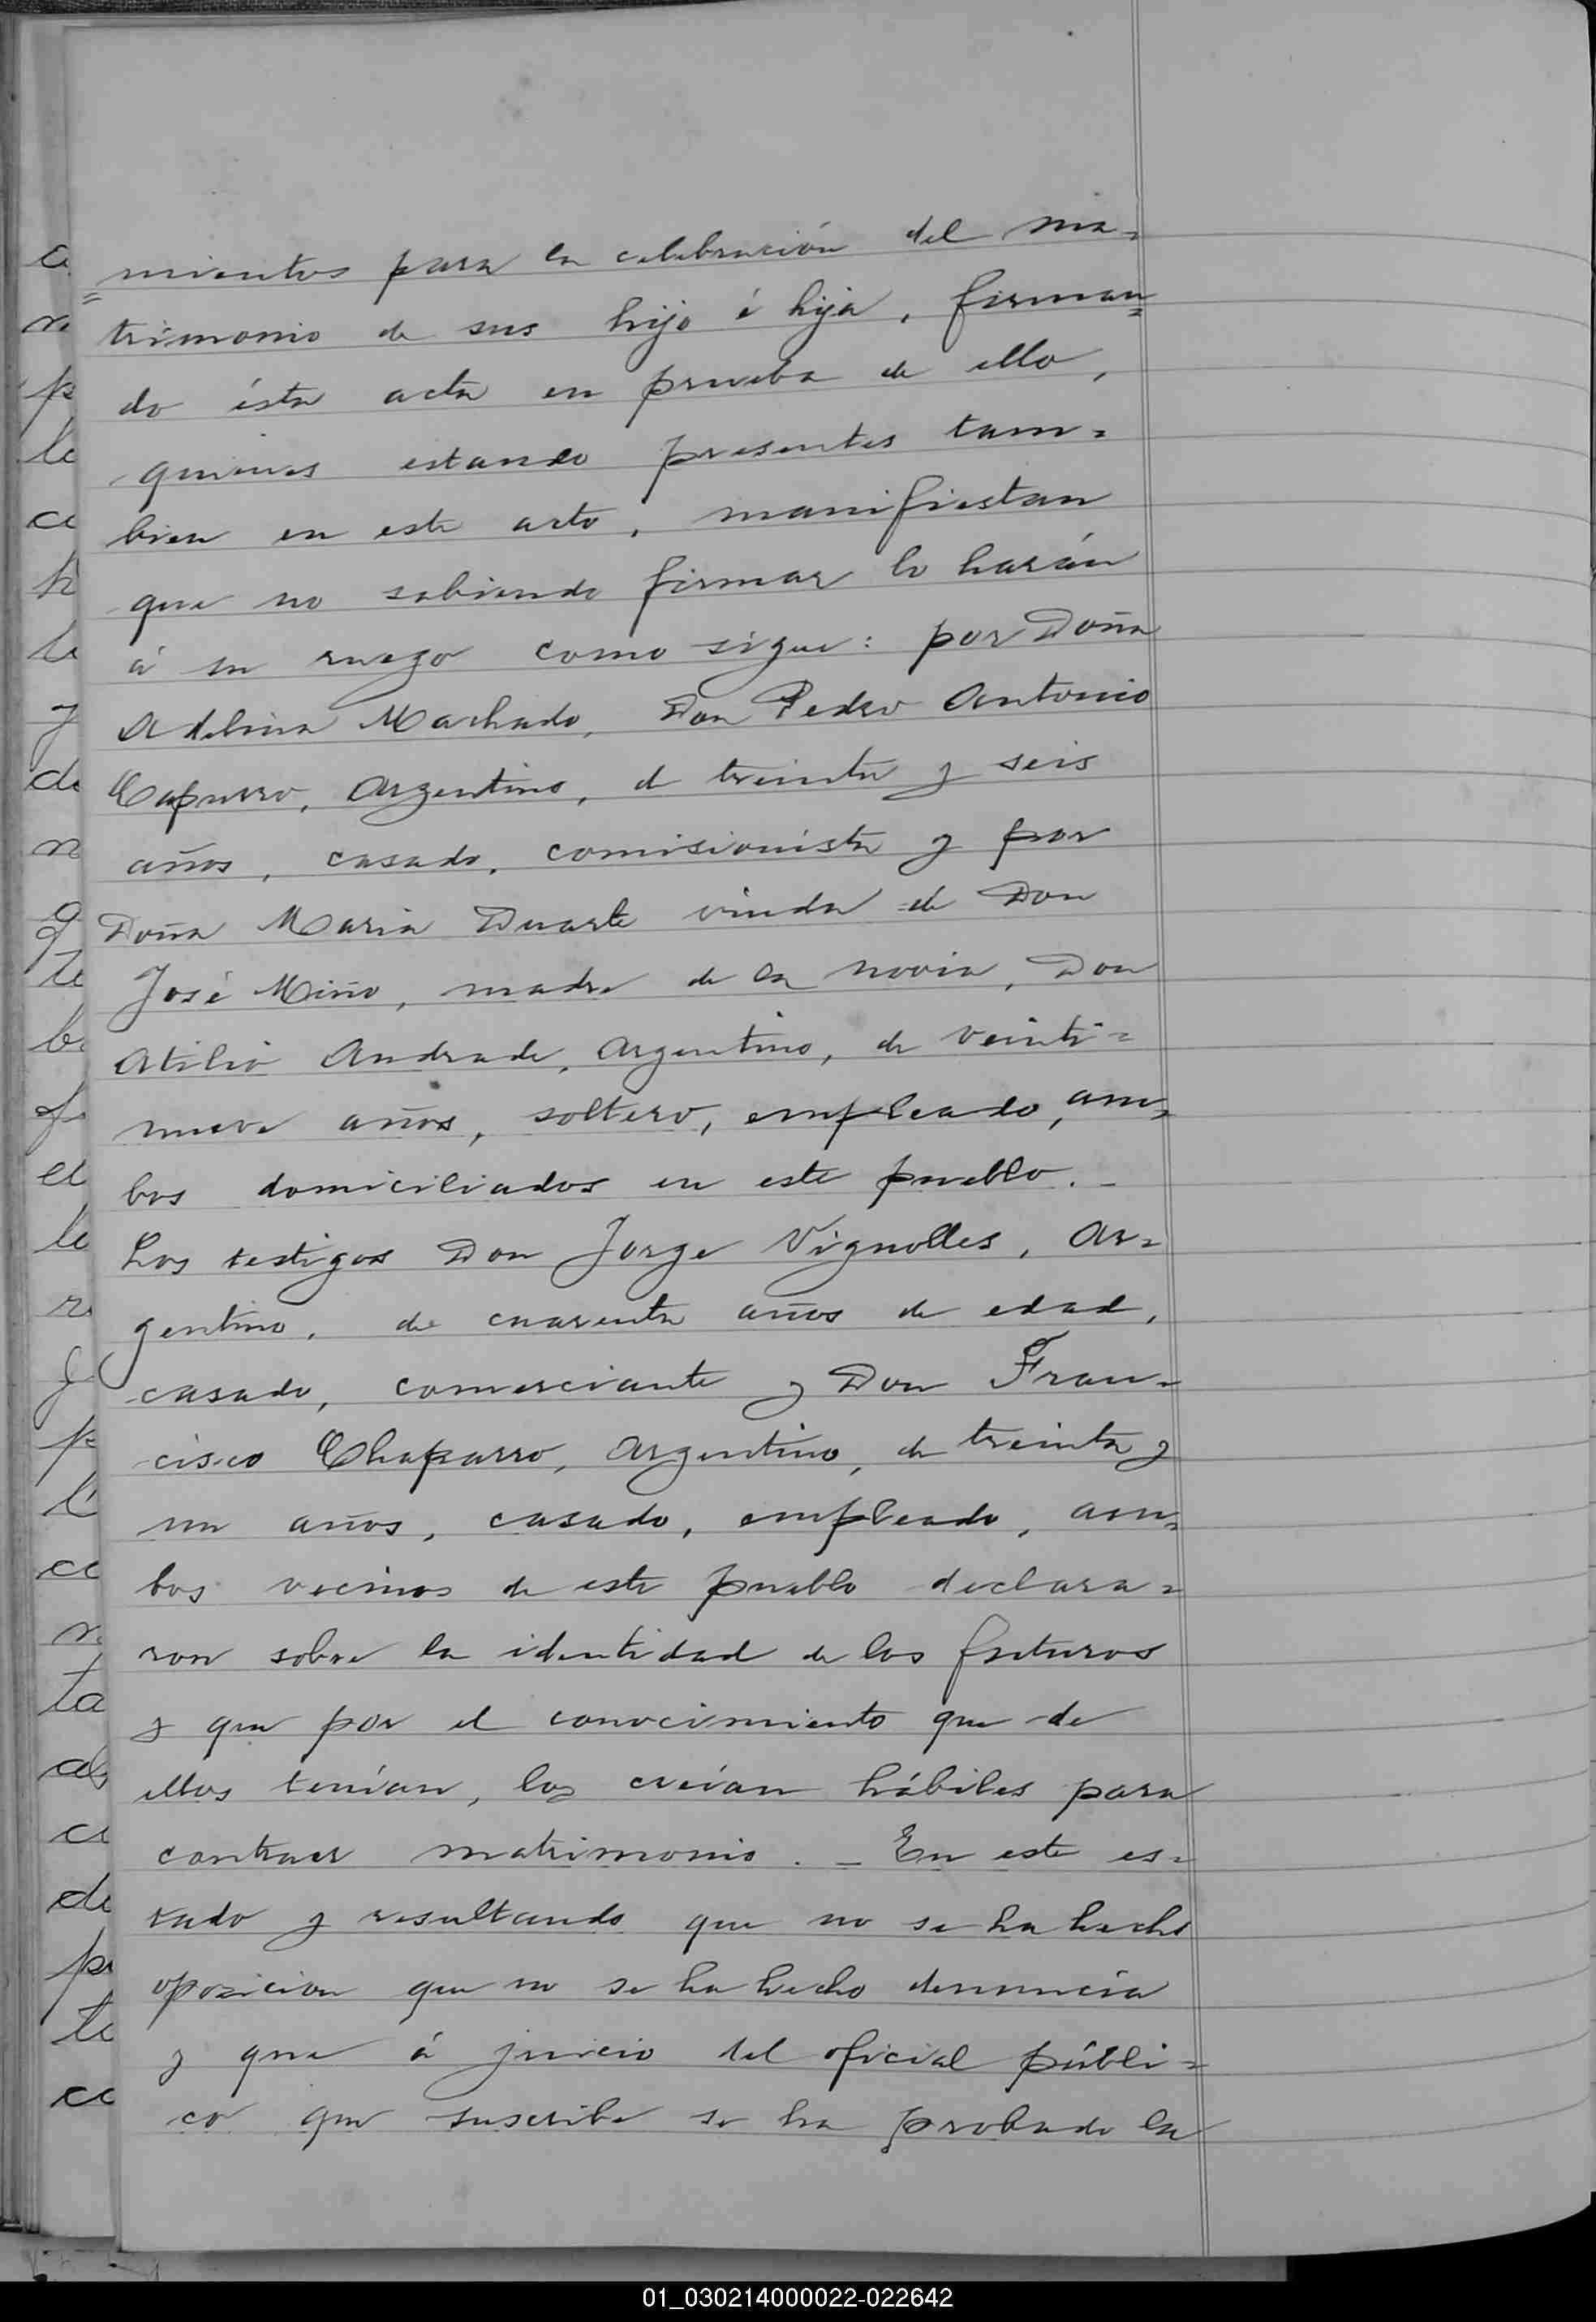 =mientos para la celebración del ma=
trimonio de sus hijo é hija, firman=
do ésta acta en prueba de ello,
quienes estando presentes tam=
bien en este acto, manifiestan
que no sabiendo firmar lo harán
á su ruego como sigue: por Doña
Adelina Machado, Don Pedro Antonio
Capurro, Argentino, de treinta y seis
años, casado, comisionista y por
Doña Maria Duarte viuda de Don
José Miño, madre de la novia, Don
Atilio Andrade, Argentino, de veinti=
nueve años, soltero, empleado, am=
bos domiciliados en este pueblo. _
Los testigos Don Jorge Vignolles, Ar=
gentino, de cuarenta años de edad,
casado, comerciante y Don Fran=
cisco Chaparro, Argentino, de treinta y
un años, casado, empleado, am=
bos vecinos de este pueblo declara=
ron sobre la identidad de los futuros
y que por el conocimiento que de
ellos tenían, los creían hábiles para
contraer matrimonio. _ En este es=
tado y resultando que no se ha hecho
oposicion que no se ha hecho denuncia
y que á juicio del oficial públi=
co que suscribe se ha probado la
01_030214000022-022642